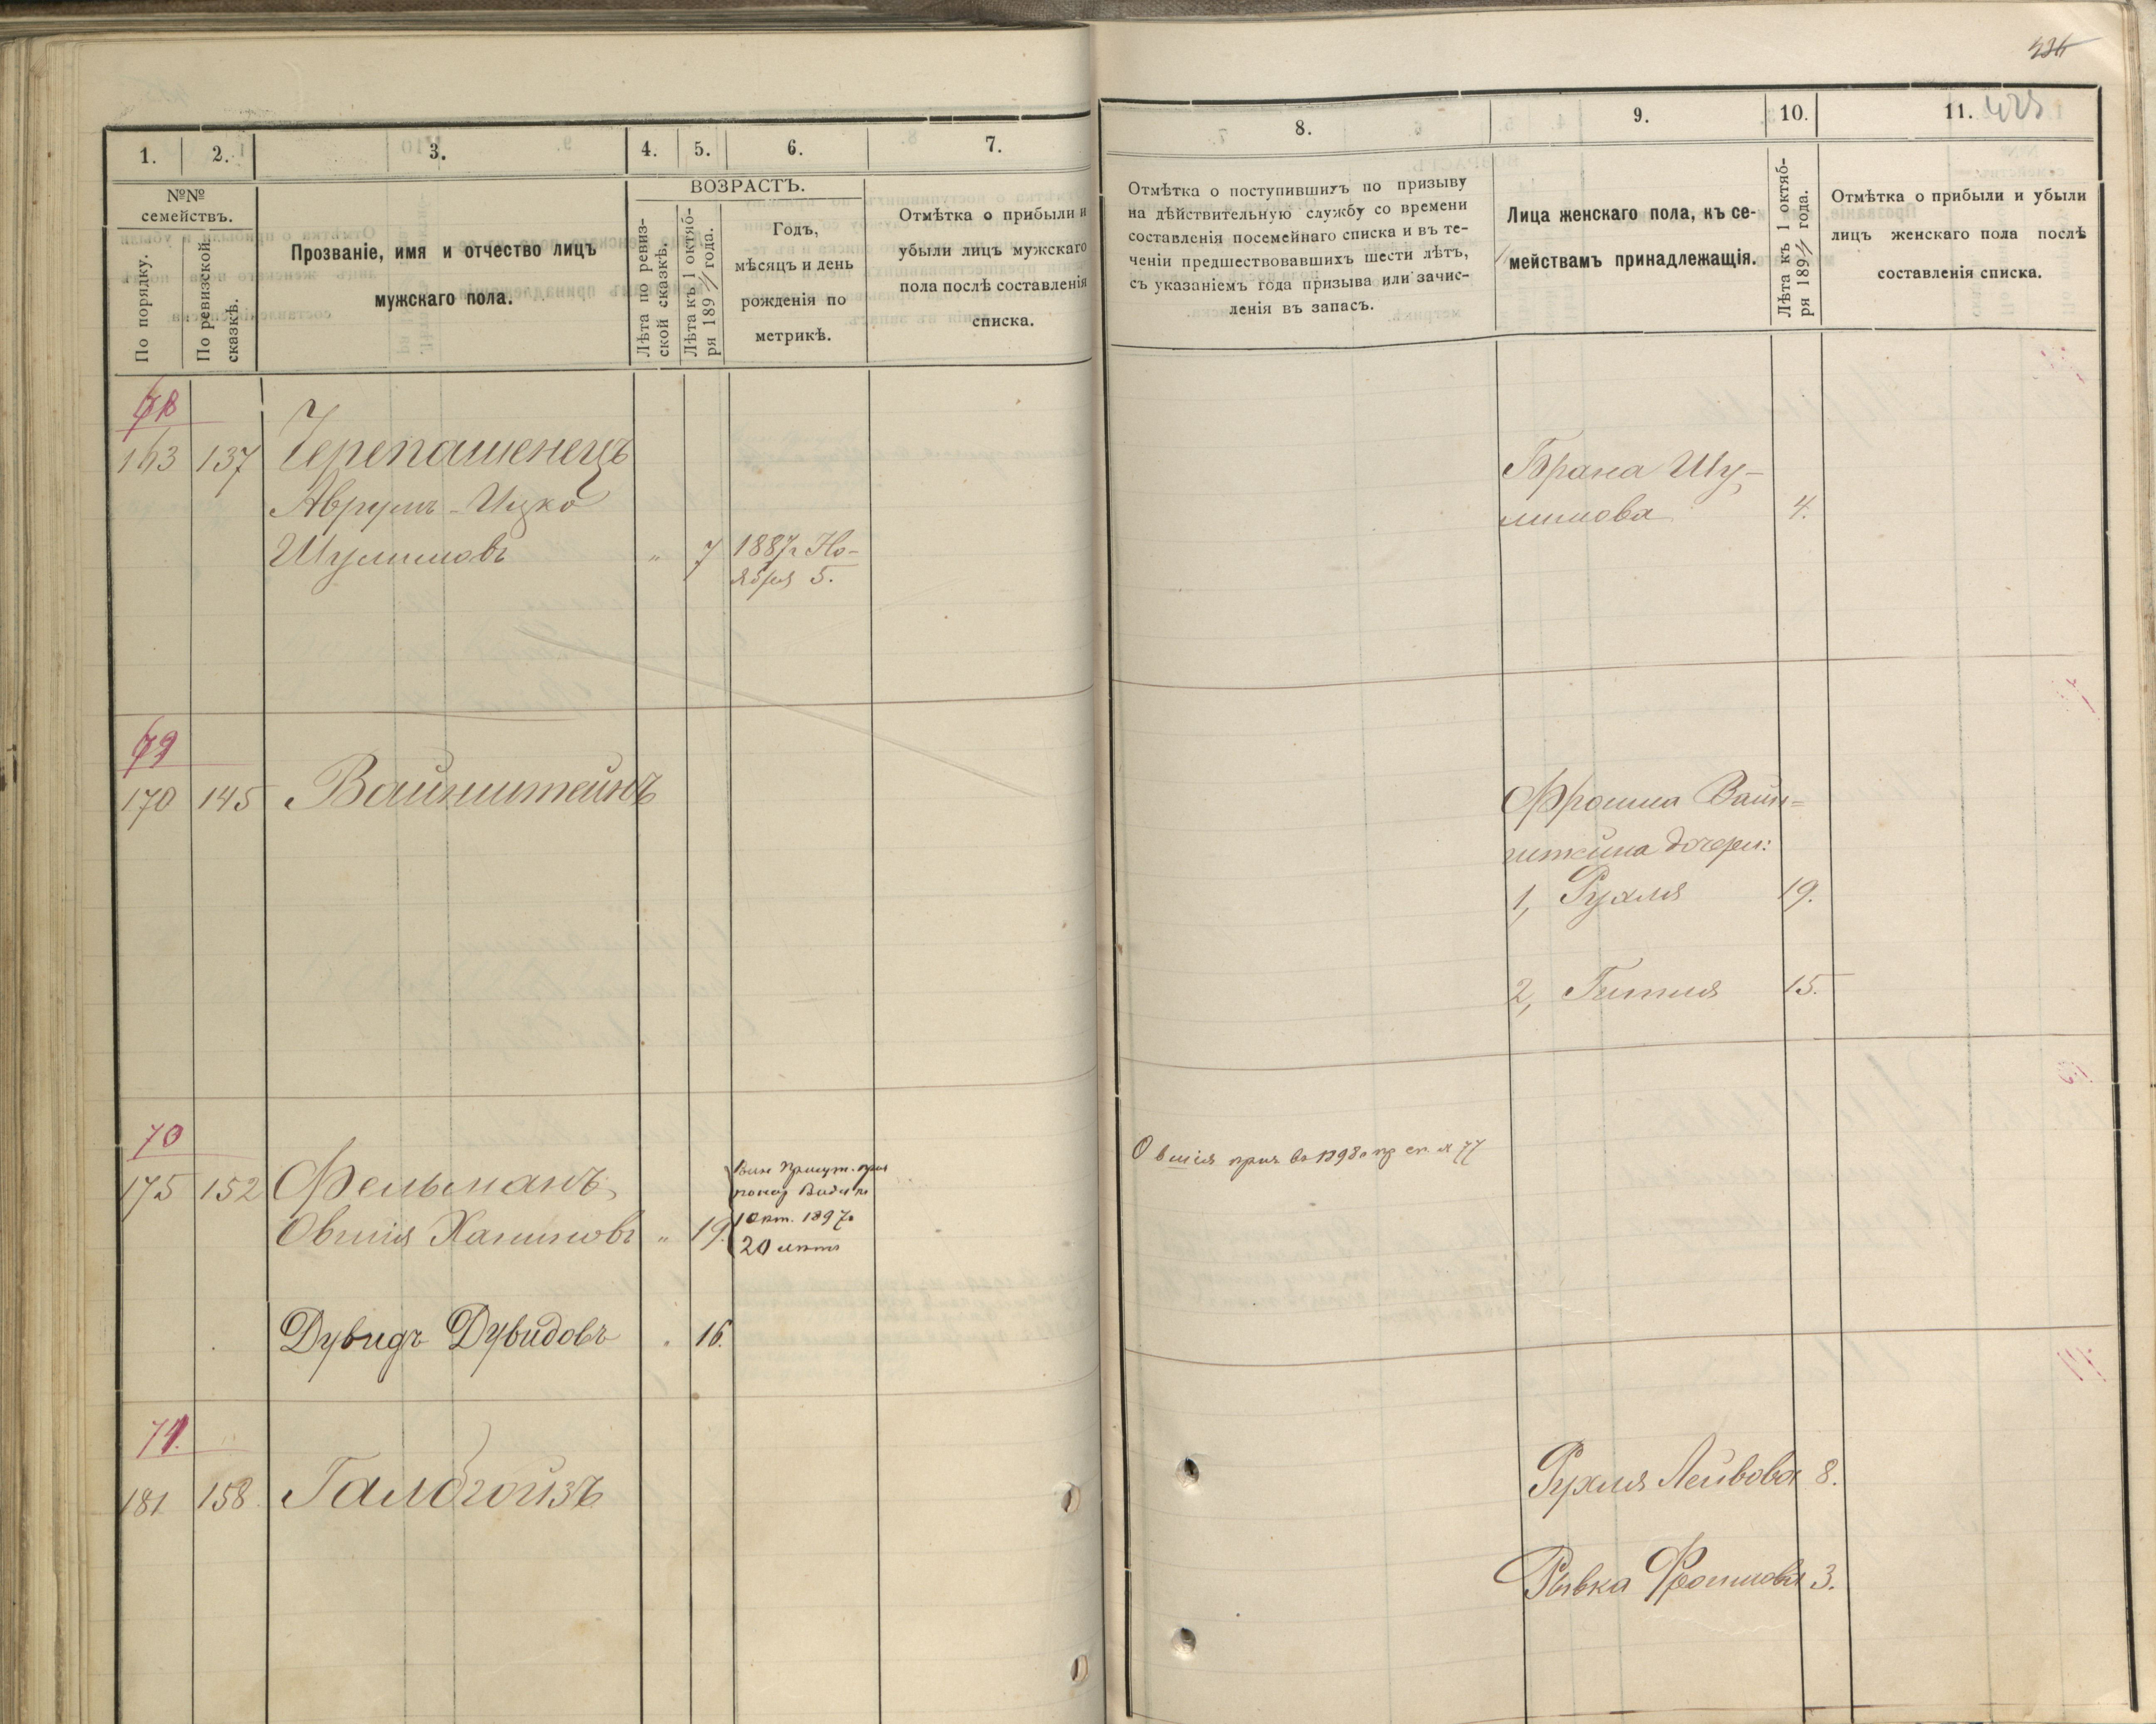 1.
2.
3.
4.
5.
6.
7.
№№
семействъ.
По порядку.
По ревизской
сказкѣ.
Прозваніе, имя и отчество лицъ
мужскаго пола.
ВОЗРАСТЪ.
Лѣта по ревиз-
ской сказкѣ.
Лѣта къ 1 октяб-
ря 189 года.
Годъ,
мѣсяцъ и день
рожденія по
метрикѣ.
Отмѣтка о прибыли и
убыли лицъ мужскаго
пола послѣ составленія
списка.
163 137 Черепашенецъ
Аврумъ-Ицко
Шулимовъ " 7 1887 г Но-
ября 5.
69
170 145 Вайнштейнъ
70
175 152 Фельманъ
Овшія Хаимовъ " 19.
1 Окт. 1897 г
20 лѣтъ
Дувидъ Дувидовъ 16.
71.
181 158 Галбгойзъ
8.
9.
10.
11.
428
Отмѣтка о поступившихъ по призыву
на дѣйствительную службу со времени
составленія посемейнаго списка и въ те-
ченіи предшествовавшихъ шести лѣтъ,
съ указаніемъ года призыва или зачис-
ленія въ запасъ.
Лица женскаго пола, къ се-
мействамъ принадлежащія.
Лѣта къ 1 октяб-
ря 189 года.
Отмѣтка о прибыли и убыли
лицъ женскаго пола послѣ
составленія списка.
Брана Шу-
лимова 4.
Фроима Вайн-
штейна дочери:
1, Рухля 19.
2, Гитля 15.
Овшія прин въ 1898 г
Рухля Лейбова 8.
Рывка Фроимова 3.